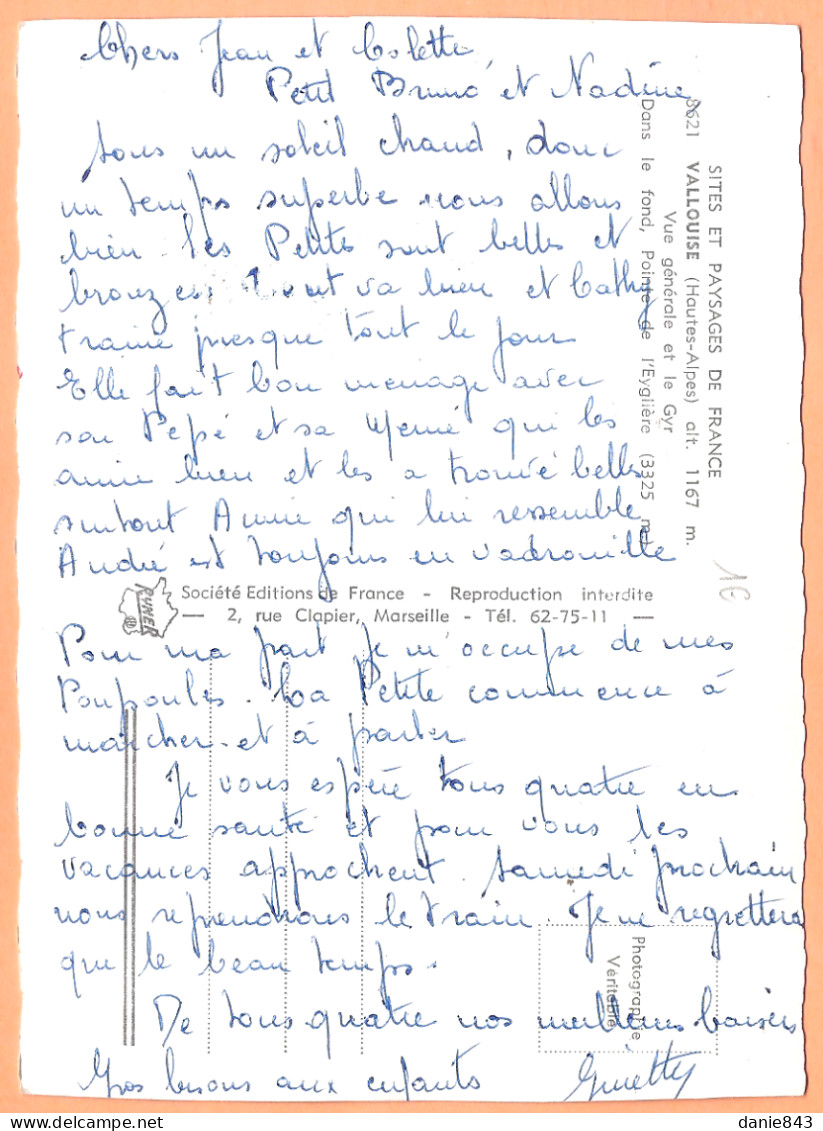 Chers Jean et Colette,
Petit Bruno et Nadine,
Sous un soleil chaud, donc
un temps superbe nous allons
bien. Les Petites sont belles et
bronzées. Tout va bien et Cathy
traine presque tout le jour
Elle fait bon menage avec
son Pépé et sa Mémé qui les
aime bien et les a trouvé belles
surtout Anne qui lui ressemble
André est toujours en vadrouille
Pour ma part je m'occupe de mes
Poupoules. La Petite commence à
marcher et à parler
Je vous espère tous quatre en
bonne santé et pour vous les
vacances approchent. Samedi prochain
nous reprendrons le train. Je ne regrettera
que le beau temps.
De tous quatre nos meilleurs baisers
Gros bisous aux enfants
SITES ET PAYSAGES DE FRANCE
8621 VALLOUISE (Hautes-Alpes) alt. 1167 m.
Vue générale et le Gyr
Dans le fond, Pointe de l'Eyglière (3325 m.)
16
RYNER
Société Editions de France - Reproduction interdite
— 2, rue Clapier, Marseille - Tél. 62-75-11 —
Photographie
Véritable
delcampe.net
danie843